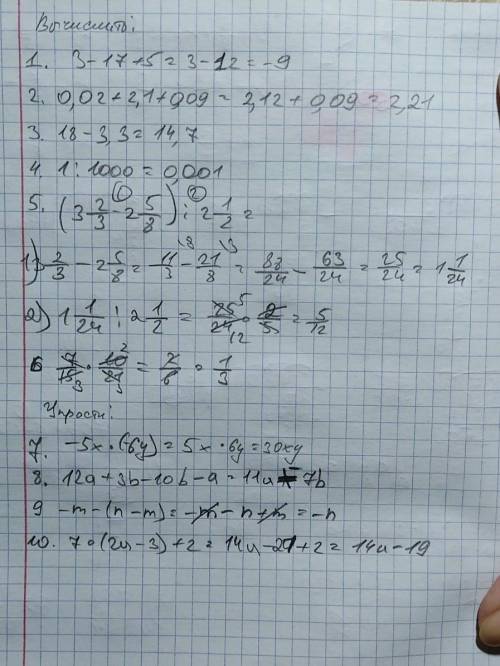 Вычислить:
1. 3-17+5=3-12=-9
2. 0,02+2,1+0,09=2,12+0,09=2,21
3. 18-3,3=14,7
4. 1:1000=0,001
① ②
5. (3 2/3 - 2 5/8) : 2 1/2 =
1) 3 2/3 - 2 5/8 = 11/3 \8 - 21/8 \3 = 88/24 - 63/24 = 25/24 = 1 1/24
2) 1 1/24 : 2 1/2 = 25/24 5 12 · 2/5 = 5/12
6 7/15 3 · 10/21 2 3 = 2/6 = 1/3
Упрости:
7. -5x·(-6y)=5x·6y=30xy
8. 12a+3b-10b-a=11a-7b
9 -m-(n-m)=-m-n+m=-n
10. 7·(2u-3)+2=14u-21+2=14u-19